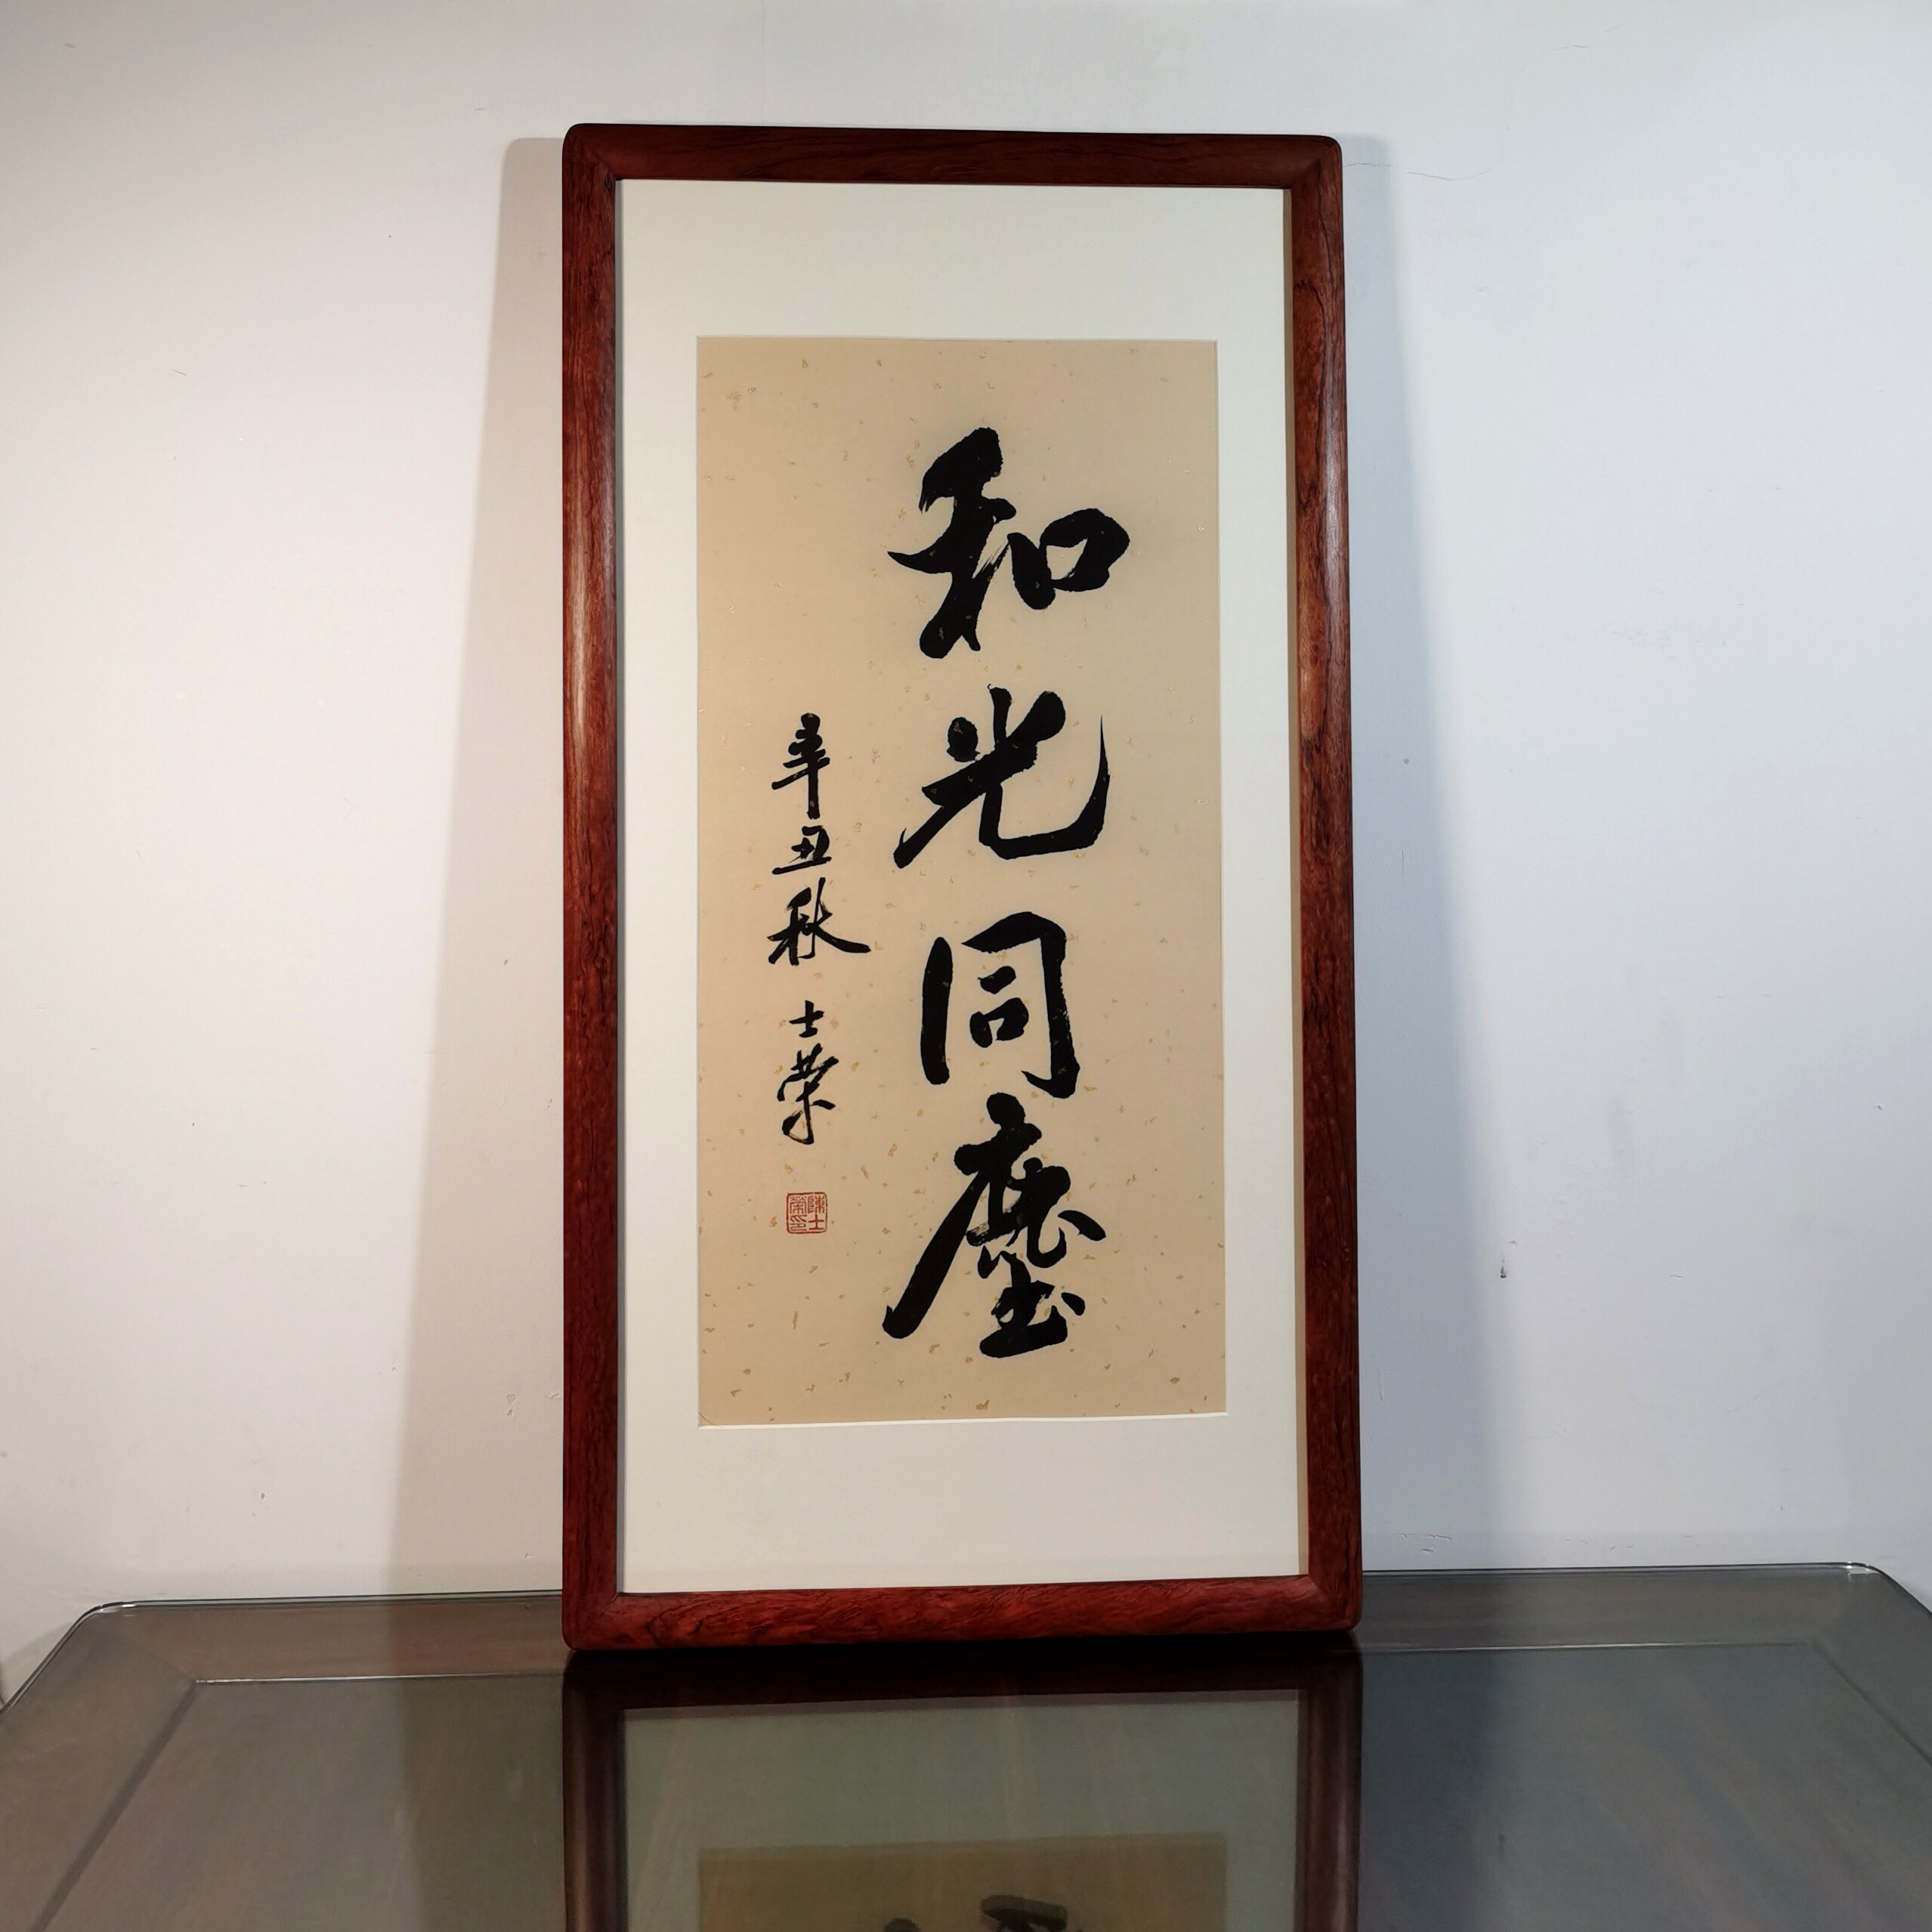 和光同塵
辛丑秋 士榮
陳士榮印